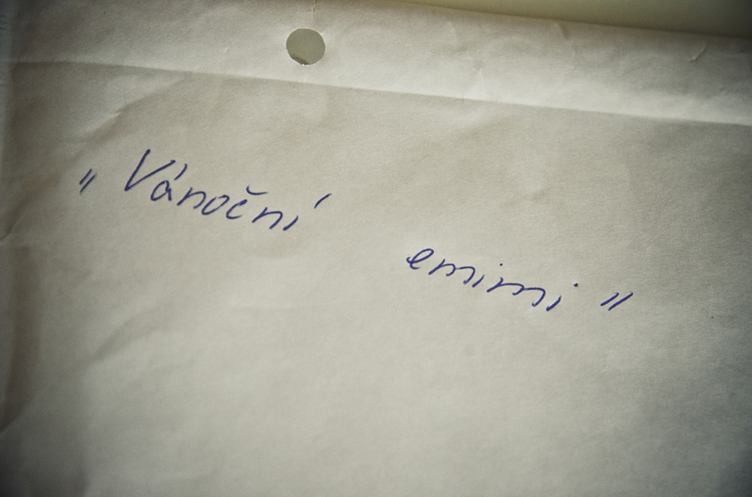 „Vánoční emimi"